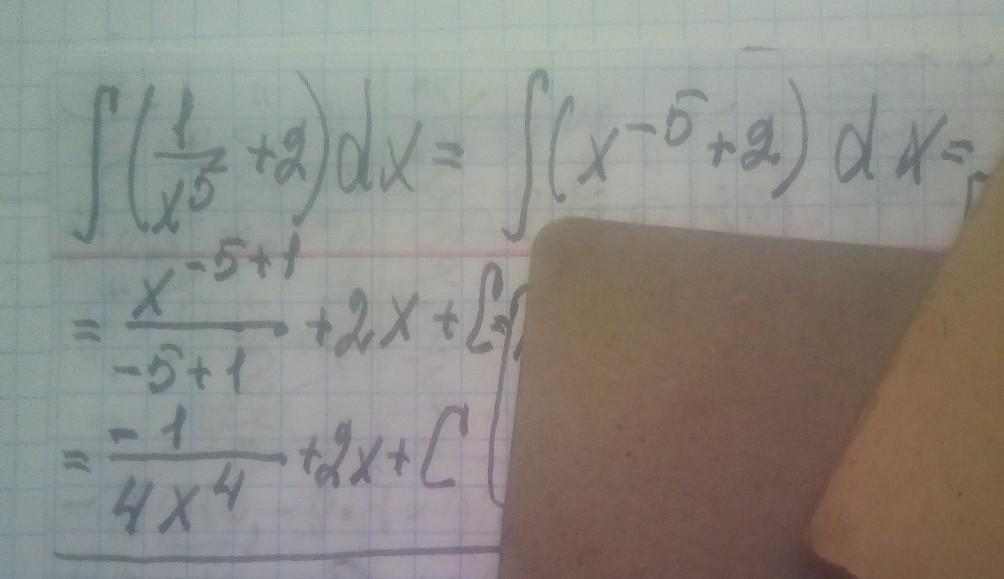 ∫(1/x⁵ +2)dx = ∫(x⁻⁵+2) dx=
= x⁻⁵⁺¹/-5+1 +2x+C=
= -1/4x⁴ +2x+C